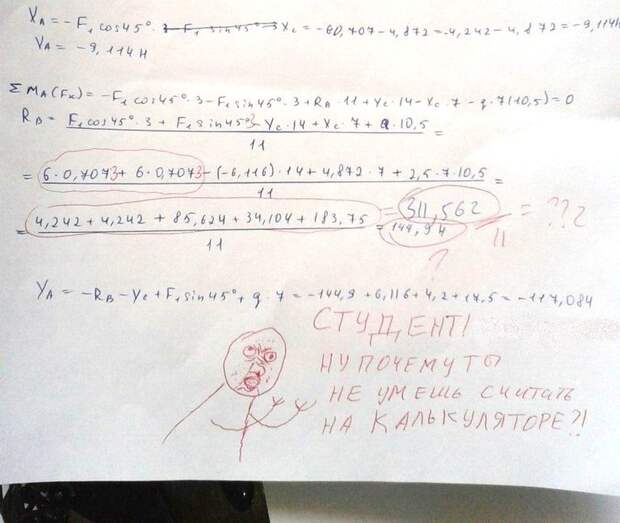 X_A = -F₁cos45° · 3 - F₁sin45° · 3 X_C = -60,707-4,872=-4,242-4,872=-9,114Н
Y_A = -9,114Н
ΣM_A(F_K) = -F₁cos45°·3-F₁sin45°·3+R_B·11+Y_C·14-X_C·7-q·7(10,5)=0
R_B = F₁cos45°·3 + F₁sin45°3-Y_C·14+X_C·7+Q·10,5 =
11
= 6·0,7073+6·0,7073-(-6,116)·14+4,872·7+2,5·7·10,5 =
11
= 4,242+4,242+85,624+34,104+183,75 = 144,94 = 311,562 = ???
11 11
?
Y_A = -R_B-Y_C+F₁sin45°+q·7=-144,9+6,116+4,2+17,5=-117,084
СТУДЕНТ!
НУ ПОЧЕМУ ТЫ
НЕ УМЕШЬ СЧИТАТЬ
НА КАЛЬКУЛЯТОРЕ?!